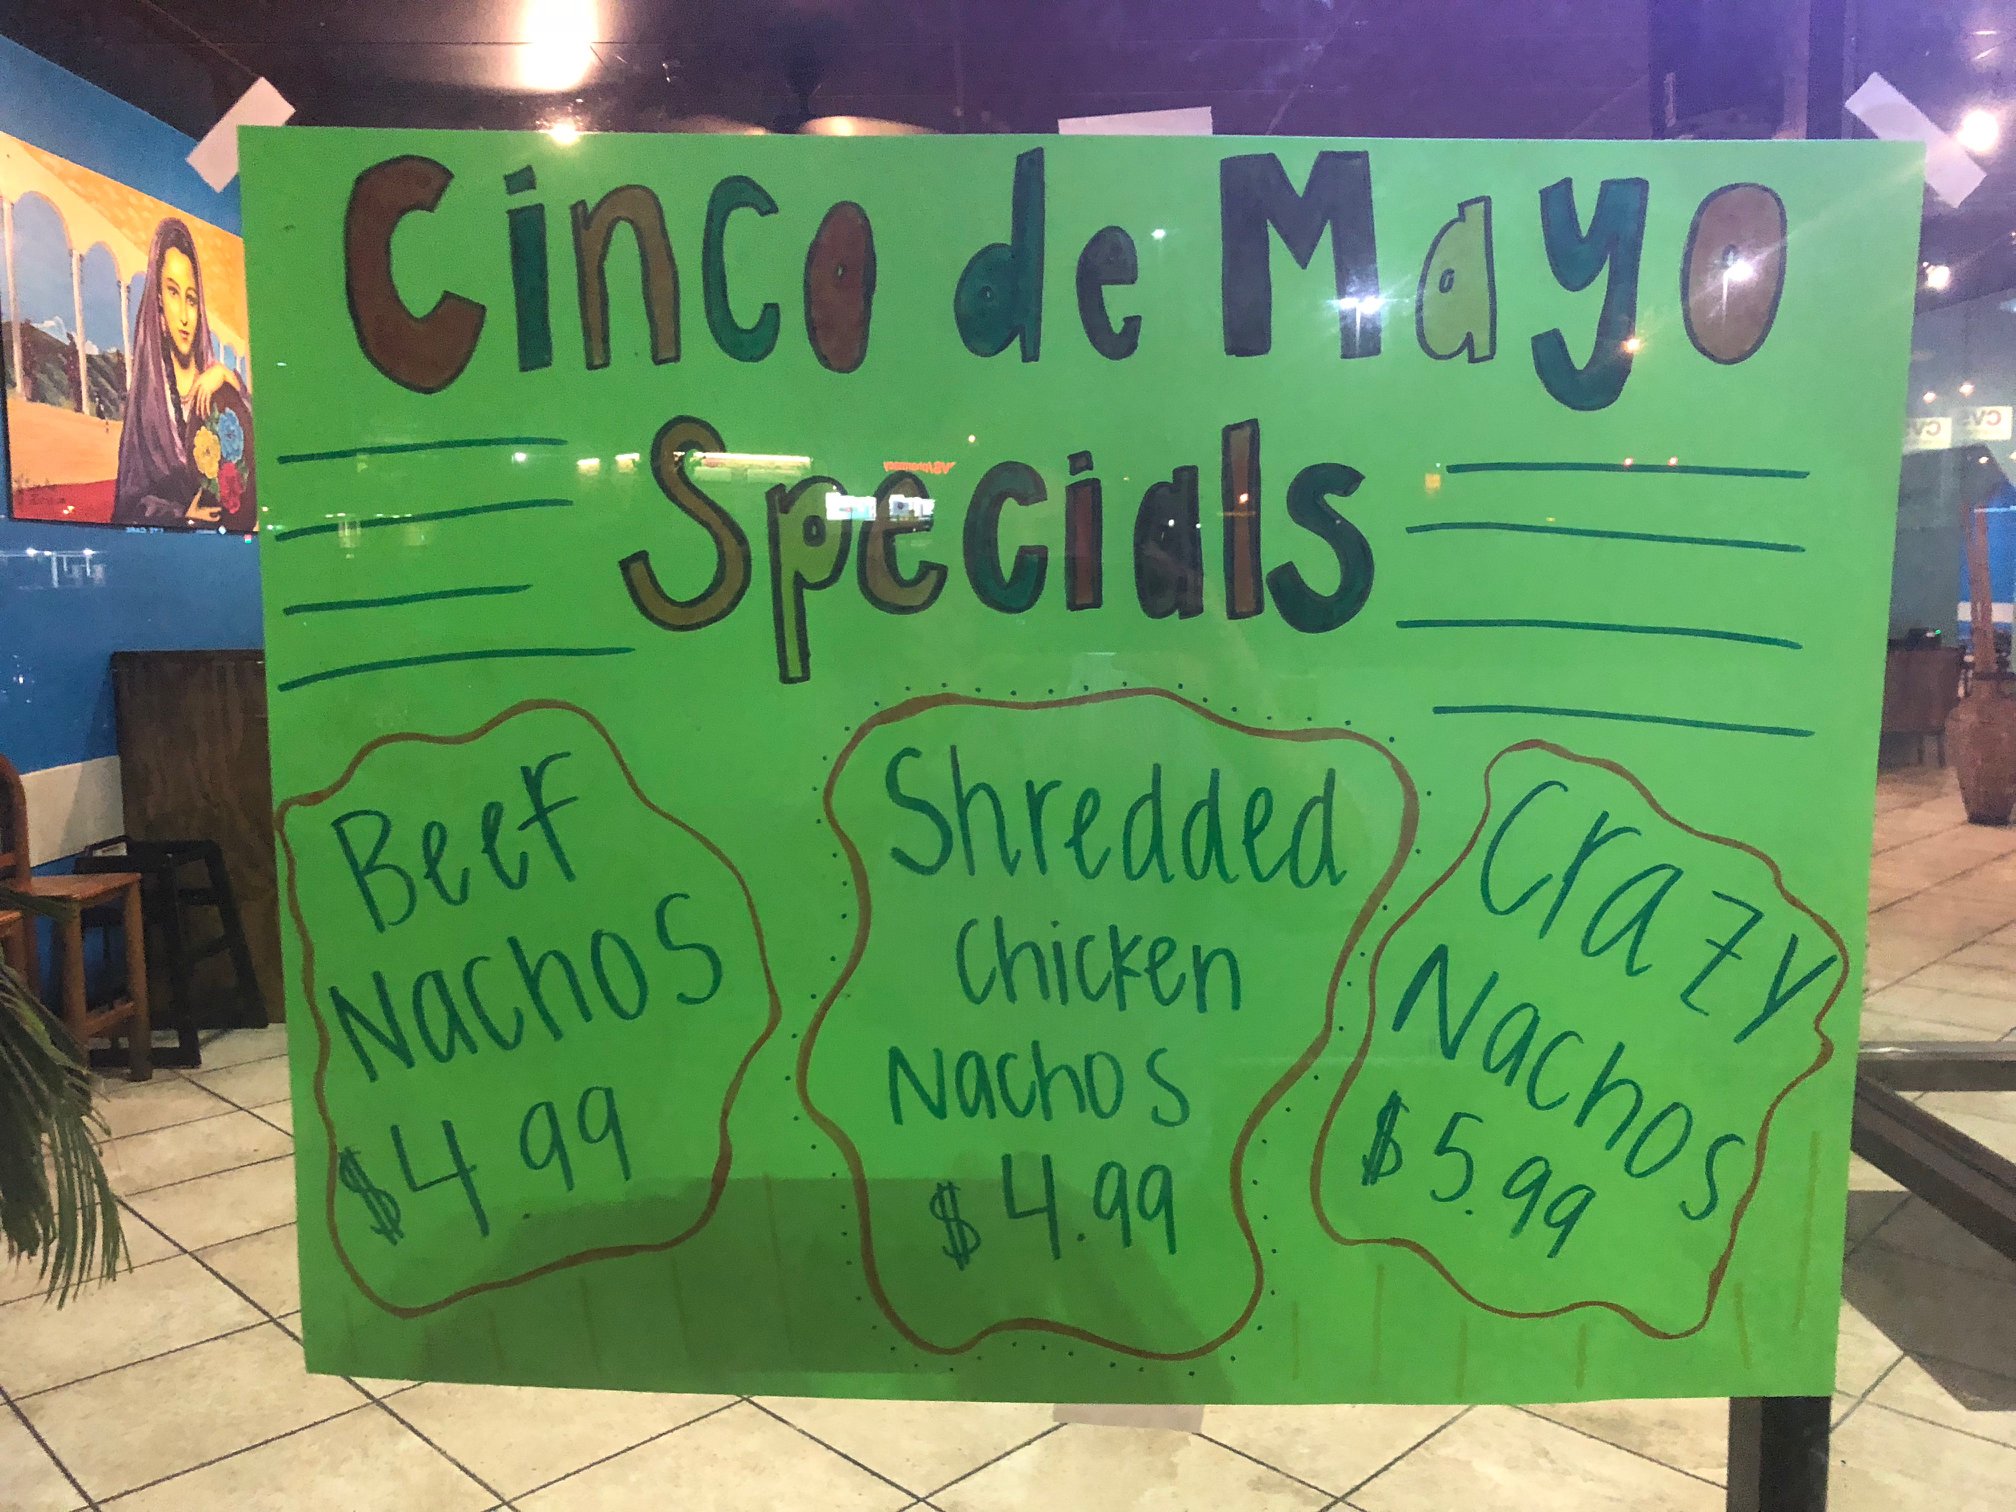 Cinco de Mayo
Specials
Beef
Nachos
$4.99
Shredded
Chicken
Nachos
$4.99
Crazy
Nachos
$5.99